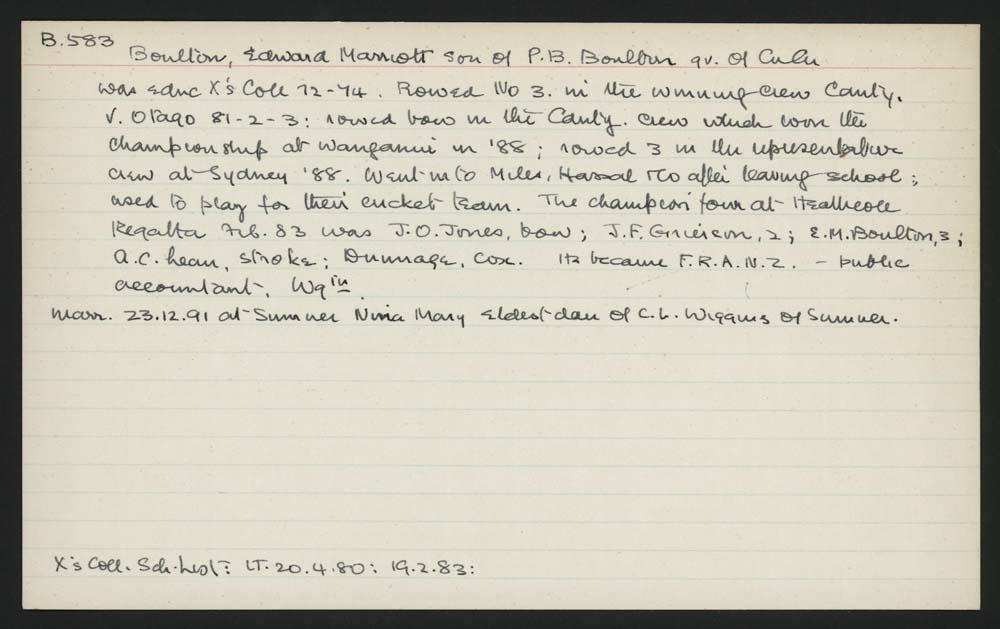 B.583
Boulton, Edward Marriott son of P.B. Boulton qv. of ChCh
was educ X's Coll 72-74. Rowed No 3. in the winning crew Canty.
v. Otago 81-2-3: rowed bow in the Canty. crew which won the
championship at Wanganui in '88; rowed 3 in the representative
crew at Sydney '88. Went into Miles, Hassal & Co after leaving school;
used to play for their cricket team. The champion four at Heathcote
Regatta Feb. 83 was J.O. Jones, bow; J.F. Grierson, 2; E.M. Boulton, 3;
A.C. Lean, stroke; Dunnage, cox. He became F.R.A.N.Z. - public
accountant, Wgtn.
marr. 23.12.91 at Sumner Nina Mary eldest dau of C.L. Wiggins of Sumner.
X's Coll. Sch. List: LT. 20.4.80: 19.2.83: